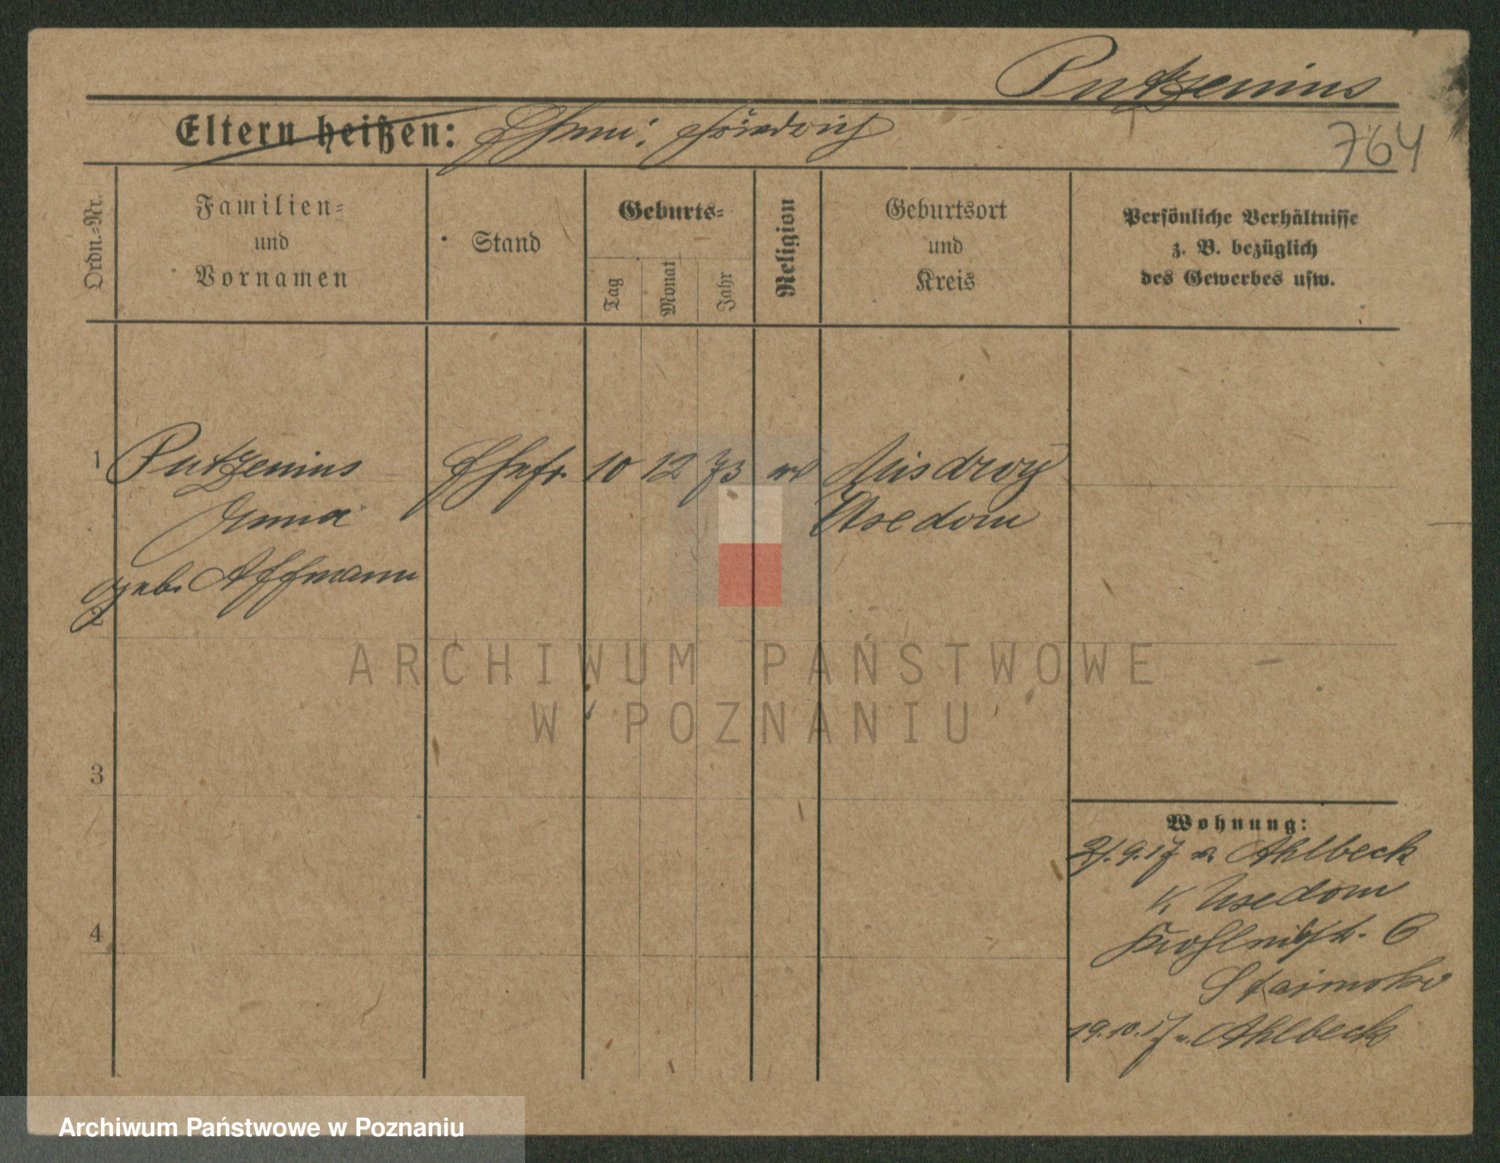 Putzenius
Eltern heißen: Ehem: Friedrich
764
Ordn.-Nr.
Familien-
und
Vornamen
Stand
Geburts-
Tag
Monat
Jahr
Religion
Geburtsort
und
Kreis
Persönliche Verhältnisse
z. B. bezüglich
des Gewerbes usw.
1 Putzenius Ehefr. 10 12 73 ev Misdroy
Anna Usedom
geb. Assmann
2
3
4
Wohnung:
9.17 v. Ahlbeck
K. Usedom
6
19.10.17 n. Ahlbeck
ARCHIWUM PAŃSTWOWE
W POZNANIU
Archiwum Państwowe w Poznaniu